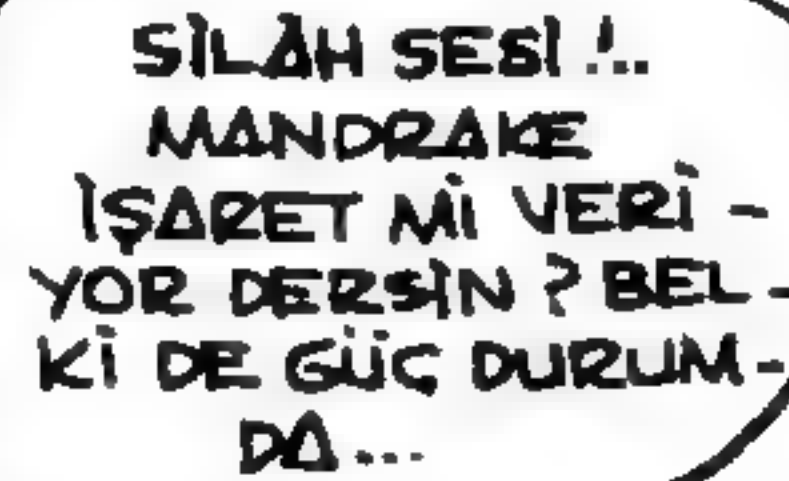 SİLAH SESİ !..
MANDRAKE
İŞARET Mİ VERİ -
YOR DERSİN ? BEL -
Kİ DE GÜÇ DURUM -
DA ...